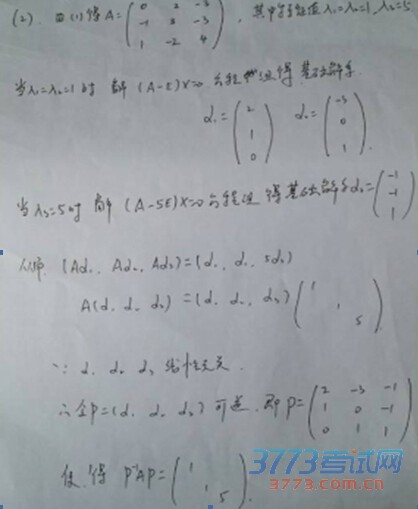 (2). 由(1)得A=(0 2 -3
-1 3 -3
1 -2 4), 其中特征值λ₁=λ₂=1, λ₃=5
当λ₁=λ₂=1时 解(A-E)X=0方程组得基础解系.
α₁=(2
1
0) α₂=(-3
0
1).
当λ₃=5时 解(A-5E)X=0方程组 得基础解系α₃=(-1
-1
1)
(Aα₁, Aα₂, Aα₃)=(α₁, α₂, 5α₃)
A(α₁ α₂ α₃)=(α₁, α₂, α₃)(1
1
5).
∵ α₁ α₂ α₃ 线性无关.
∴令P=(α₁ α₂ α₃)可逆. 即P=(2 -3 -1
1 0 -1
0 1 1)
使得 P⁻¹AP=(1
1
5).
3773考试网
3773.com.cn